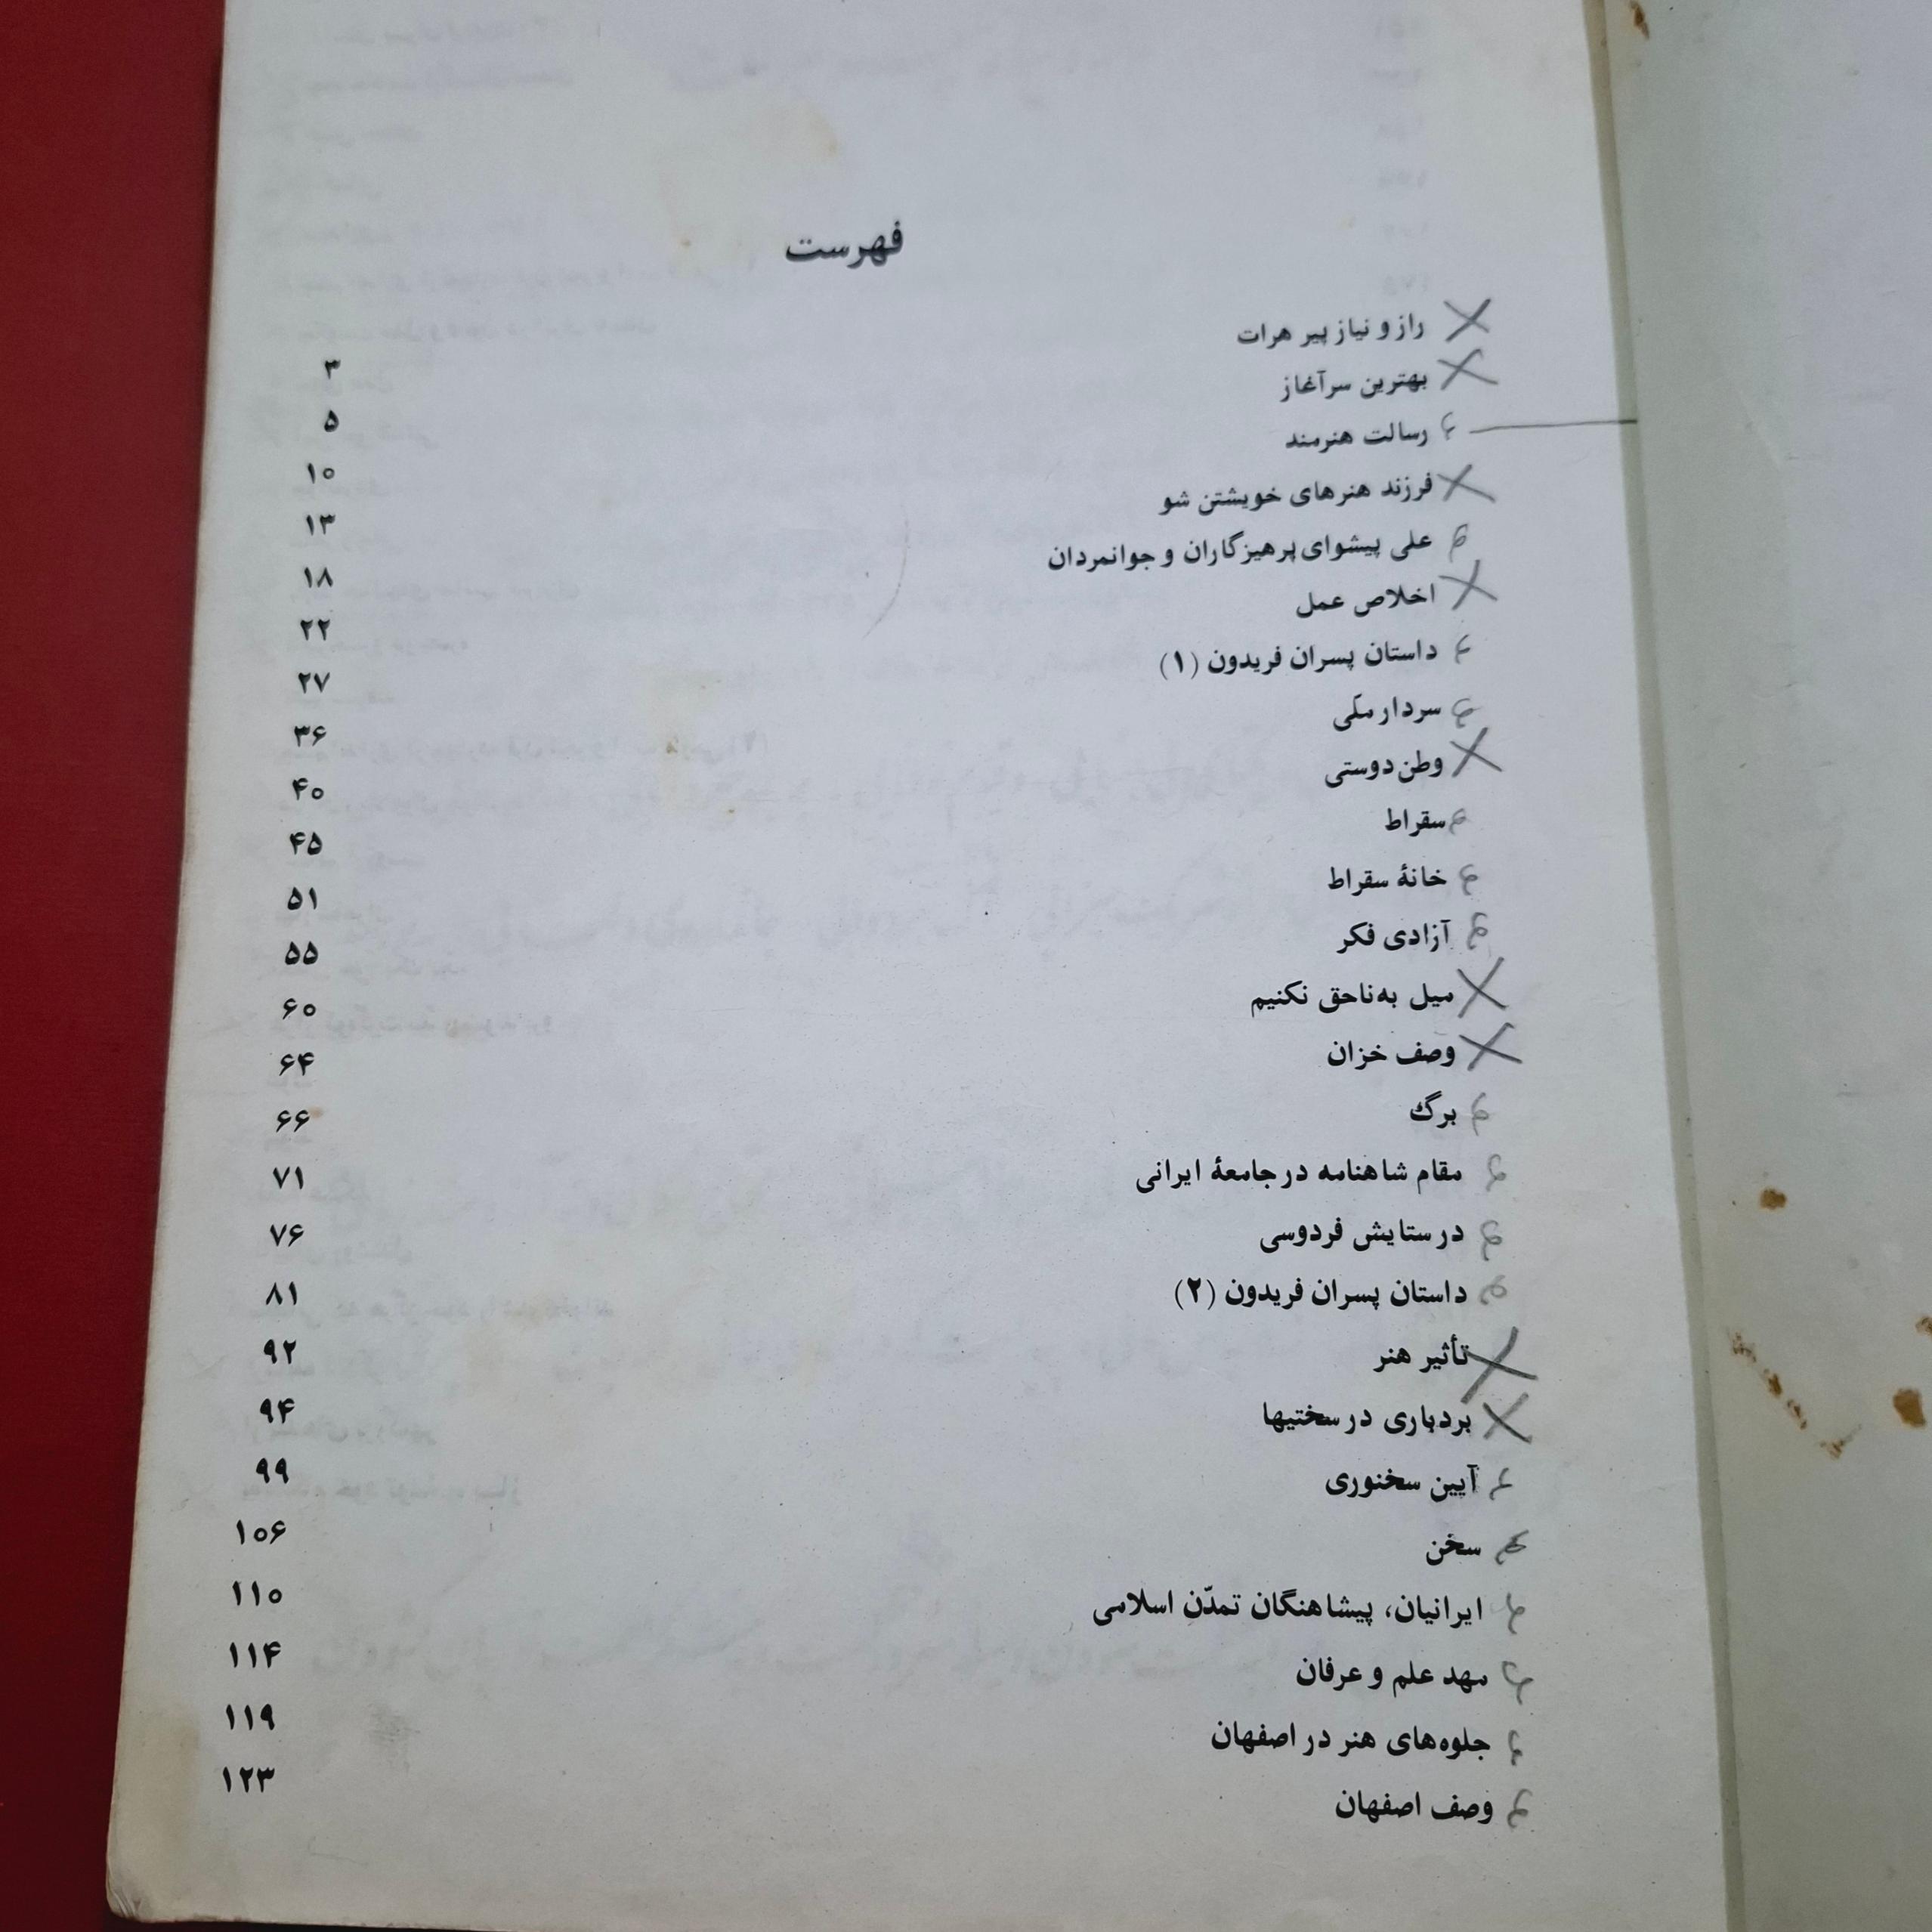 فهرست
راز و نیاز پیر هرات ۳
بهترین سرآغاز ۵
رسالت هنرمند ۱۰
فرزند هنرهای خویشتن شو ۱۳
علی پیشوای پرهیزگاران و جوانمردان ۱۸
اخلاص عمل ۲۲
داستان پسران فریدون (۱) ۲۷
سردار ملّی ۳۶
وطن‌دوستی ۴۰
سقراط ۴۵
خانهٔ سقراط ۵۱
آزادی فکر ۵۵
میل به‌ناحق نکنیم ۶۰
وصف خزان ۶۴
برگ ۶۶
مقام شاهنامه در جامعهٔ ایرانی ۷۱
در ستایش فردوسی ۷۶
داستان پسران فریدون (۲) ۸۱
تأثیر هنر ۹۲
بردباری در سختیها ۹۴
آیین سخنوری ۹۹
سخن ۱۰۶
ایرانیان، پیشاهنگان تمدّن اسلامی ۱۱۰
مهد علم و عرفان ۱۱۴
جلوه‌های هنر در اصفهان ۱۱۹
وصف اصفهان ۱۲۳